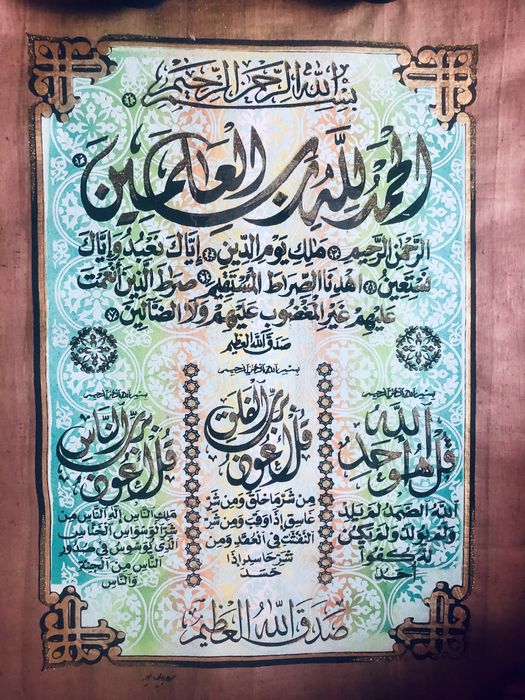 بِسْمِ اللَّهِ الرَّحْمَنِ الرَّحِيمِ ١
الْحَمْدُ لِلَّهِ رَبِّ الْعَالَمِينَ ٢
الرَّحْمَنِ الرَّحِيمِ ٣ مَلِكِ يَوْمِ الدِّينِ ٤ إِيَّاكَ نَعْبُدُ وَإِيَّاكَ
نَسْتَعِينُ ٥ اهْدِنَا الصِّرَاطَ الْمُسْتَقِيمَ ٦ صِرَاطَ الَّذِينَ أَنْعَمْتَ
عَلَيْهِمْ غَيْرِ الْمَغْضُوبِ عَلَيْهِمْ وَلَا الضَّالِّينَ ٧
صَدَقَ اللَّهُ الْعَظِيمُ
بسم الله الرحمن الرحيم
قُلْ هُوَ اللَّهُ أَحَد
اللَّهُ الصَّمَدُ لَمْ يَلِدْ
وَلَمْ يُولَدْ وَلَمْ يَكُن
لَّهُ كُفُوًا
أَحَدٌ
بسم الله الرحمن الرحيم
قُلْ أَعُوذُ بِرَبِّ الْفَلَقِ
مِن شَرِّ مَا خَلَقَ وَمِن شَرِّ
غَاسِقٍ إِذَا وَقَبَ وَمِن شَرِّ
النَّفَّثَتِ فِي الْعُقَدِ وَمِن
شَرِّ حَاسِدٍ إِذَا
حَسَدَ
بسم الله الرحمن الرحيم
قُلْ أَعُوذُ بِرَبِّ النَّاسِ
مَلِكِ النَّاسِ إِلَهِ النَّاسِ مِن
شَرِّ الْوَسْوَاسِ الْخَنَّاسِ
الَّذِي يُوَسْوِسُ فِي صُدُورِ
النَّاسِ مِنَ الْجِنَّةِ
وَالنَّاسِ
صَدَقَ اللَّهُ الْعَظِيمُ